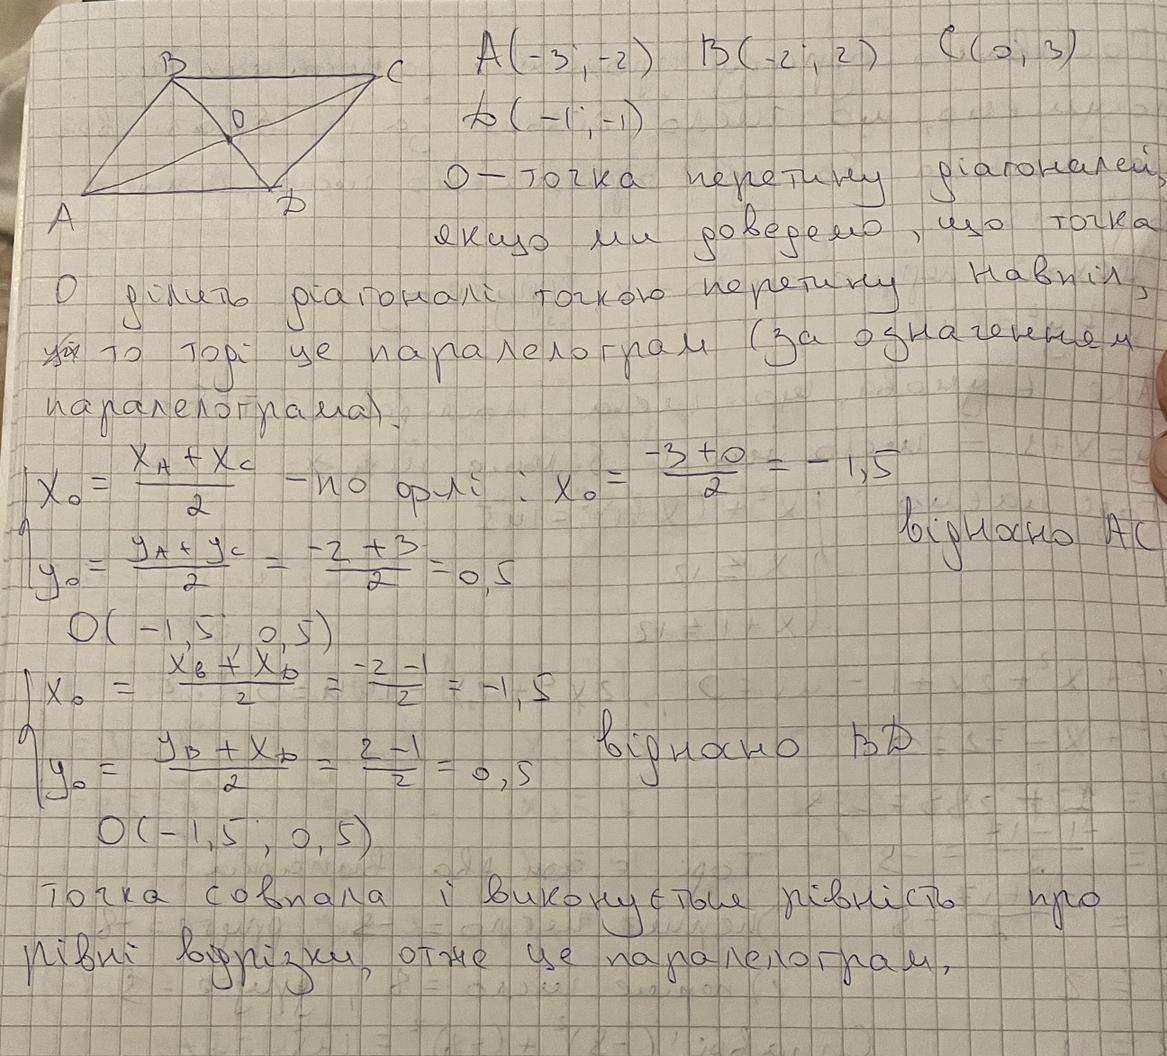 B C A(-3; -2) B(-2; 2) C(0; 3)
O D(-1; -1)
A D O – точка перетину діагоналей,
якщо ми доведемо, що точка
O ділить діагоналі точкою перетину навпіл,
то тоді це паралелограм (за означенням
паралелограма).
x₀ = (x_A + x_C)/2 – по ф-лі : x₀ = (-3 + 0)/2 = -1,5
відносно AC
y₀ = (y_A + y_C)/2 = (-2 + 3)/2 = 0,5
O(-1,5; 0,5)
x₀ = (x_B + x_D)/2 = (-2 - 1)/2 = -1,5
відносно BD
y₀ = (y_B + x_D)/2 = (2 - 1)/2 = 0,5
O(-1,5; 0,5)
точка совпала і виконується рівність про
рівні відрізки, отже це паралелограм.